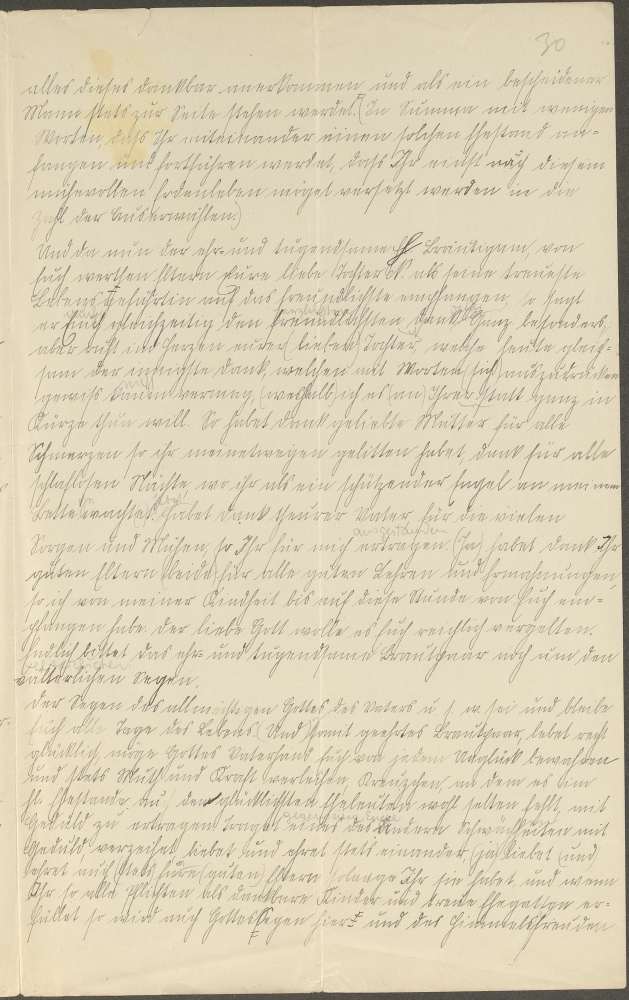 30
alles dieses dankbar anerkennen und als ein bescheidener
Mann stets zur Seite stehen werdet. (In Summa mit wenigen
Worten, dass Ihr miteinander einen solchen Ehestand an-
fangen und fortführen werdet, dass Ihr einst nach diesem
mühevollen Erdenleben möget versetzt werden in die
Zahl der Auserwählten.)
Und da nun der ehr- und tugendsame H Bräutigam, von
Euch werthen Eltern Eure liebe Tochter N. als seine treueste
Lebensgefährtin auf das freundlichste empfangen, so sagt
er Euch gleichzeitig den freundlichsten Dank. Ganz besonders
aber auch im Herzen eurer (lieben) Tochter, welche heute gleich-
sam der innigste Dank, welchen mit Worten sich auszudrücken
gewiss kaum vermag, (weshalb) ich es (an) Ihrer statt ganz in
Kürze thun will. So habet dank geliebte Mutter für alle
Schmerzen so ihr meinetwegen gelitten habet, dank für alle
schlaflosen Nächte, wo ihr als ein schützender Engel an meinem
Bette wachtet. Habet Dank theurer Vater für die vielen
ausgestanden
Sorgen und Mühen, so Ihr für mich ertragen. (Ja) habet dank Ihr
guten Eltern (beide) für alle guten Lehren und Ermahnungen,
so ich von meiner Kindheit bis auf diese Stunde von Euch em-
pfangen habe. Der liebe Gott wolle es Euch reichlich vergelten.
Endlich bittet das ehr- und tugendsame Brautpaar noch um den
väterlichen Segen.
Der Segen des allmächtigen Gottes des Vaters u. s. w. sei und bleibe
Euch alle Tage des Lebens. (Und) Somit geehrtes Brautpaar, lebet recht
glücklich, möge Gottes Vaterhand Euch von jedem Unglück bewahren
und stets Muth und Kraft verleihen, Kreuzchen, an dem es im
hl. Ehestande, (auch) den glücklichsten Eheleuten wohl selten fehlt, mit
Geduld zu ertragen. Traget eines des Andern Schwächen mit
Geduld verzeihet, liebet und ehret stets einander (ja) liebet (und)
ehret auch stets Eure (guten) Eltern solange Ihr sie habet, und wenn
Ihr so alle Pflichten als dankbare Kinder und treue Ehegatten er-
füllet so wird auch Gottes Segen hier und des Himmelsfreuden